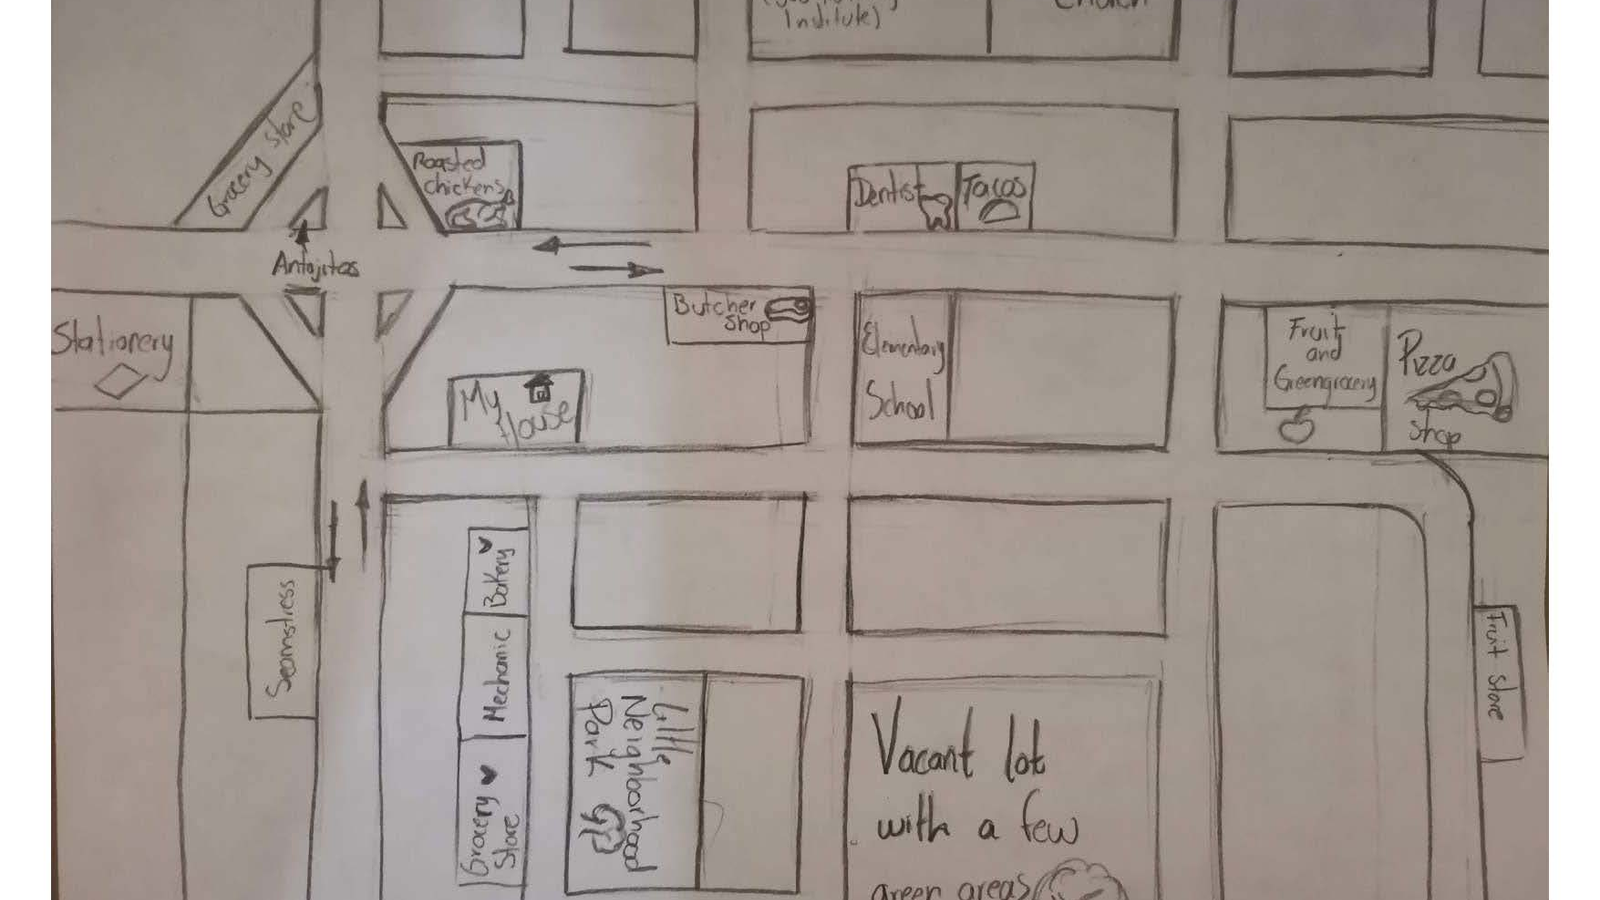 Institute)
Church
Grocery store
Roasted
chickens
Dentist
Tacos
Antojitos
Stationery
Butcher
shop
My
House
Elementary
School
Fruit
and
Greengrocery
Pizza
shop
Seamstress
Bakery
Mechanic
Grocery
Store
Little
Neighborhood
Park
Vacant lot
with a few
green areas
Fruit store